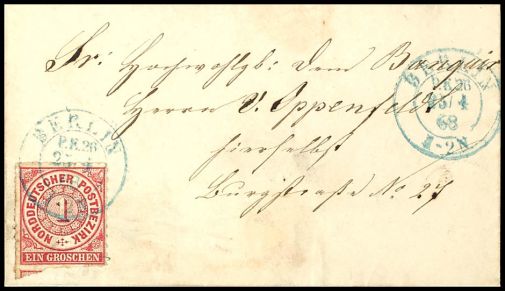 Sr: Hochwohlgb: dem Banquier
Herrn V. Oppenfeld
hierselbst
Burgstraße No 27
BERLIN
P.E.26
25/4
68
1-2N
BERLIN
P.E.26
25/4
NORDDEUTSCHER POSTBEZIRK
1
EIN GROSCHEN